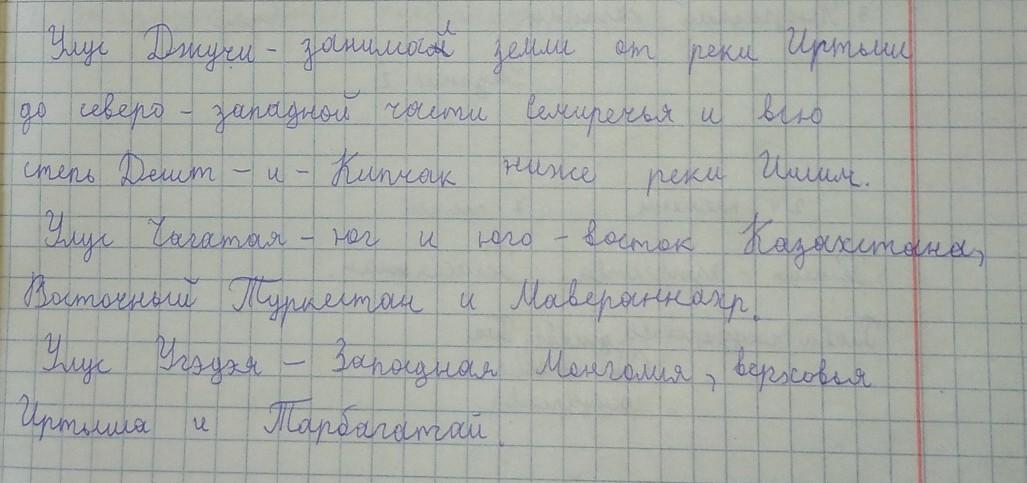 Улус Джучи - занимал земли от реки Иртыш
до северо - западной части Семиречья и всю
степь Дешт - и - Кипчак ниже реки Ишим.
Улус Чагатая - юг и юго - восток Казахстана,
Восточный Туркестан и Мавераннахр.
Улус Угэдэя - Западная Монголия, верховья
Иртыша и Тарбагатай.